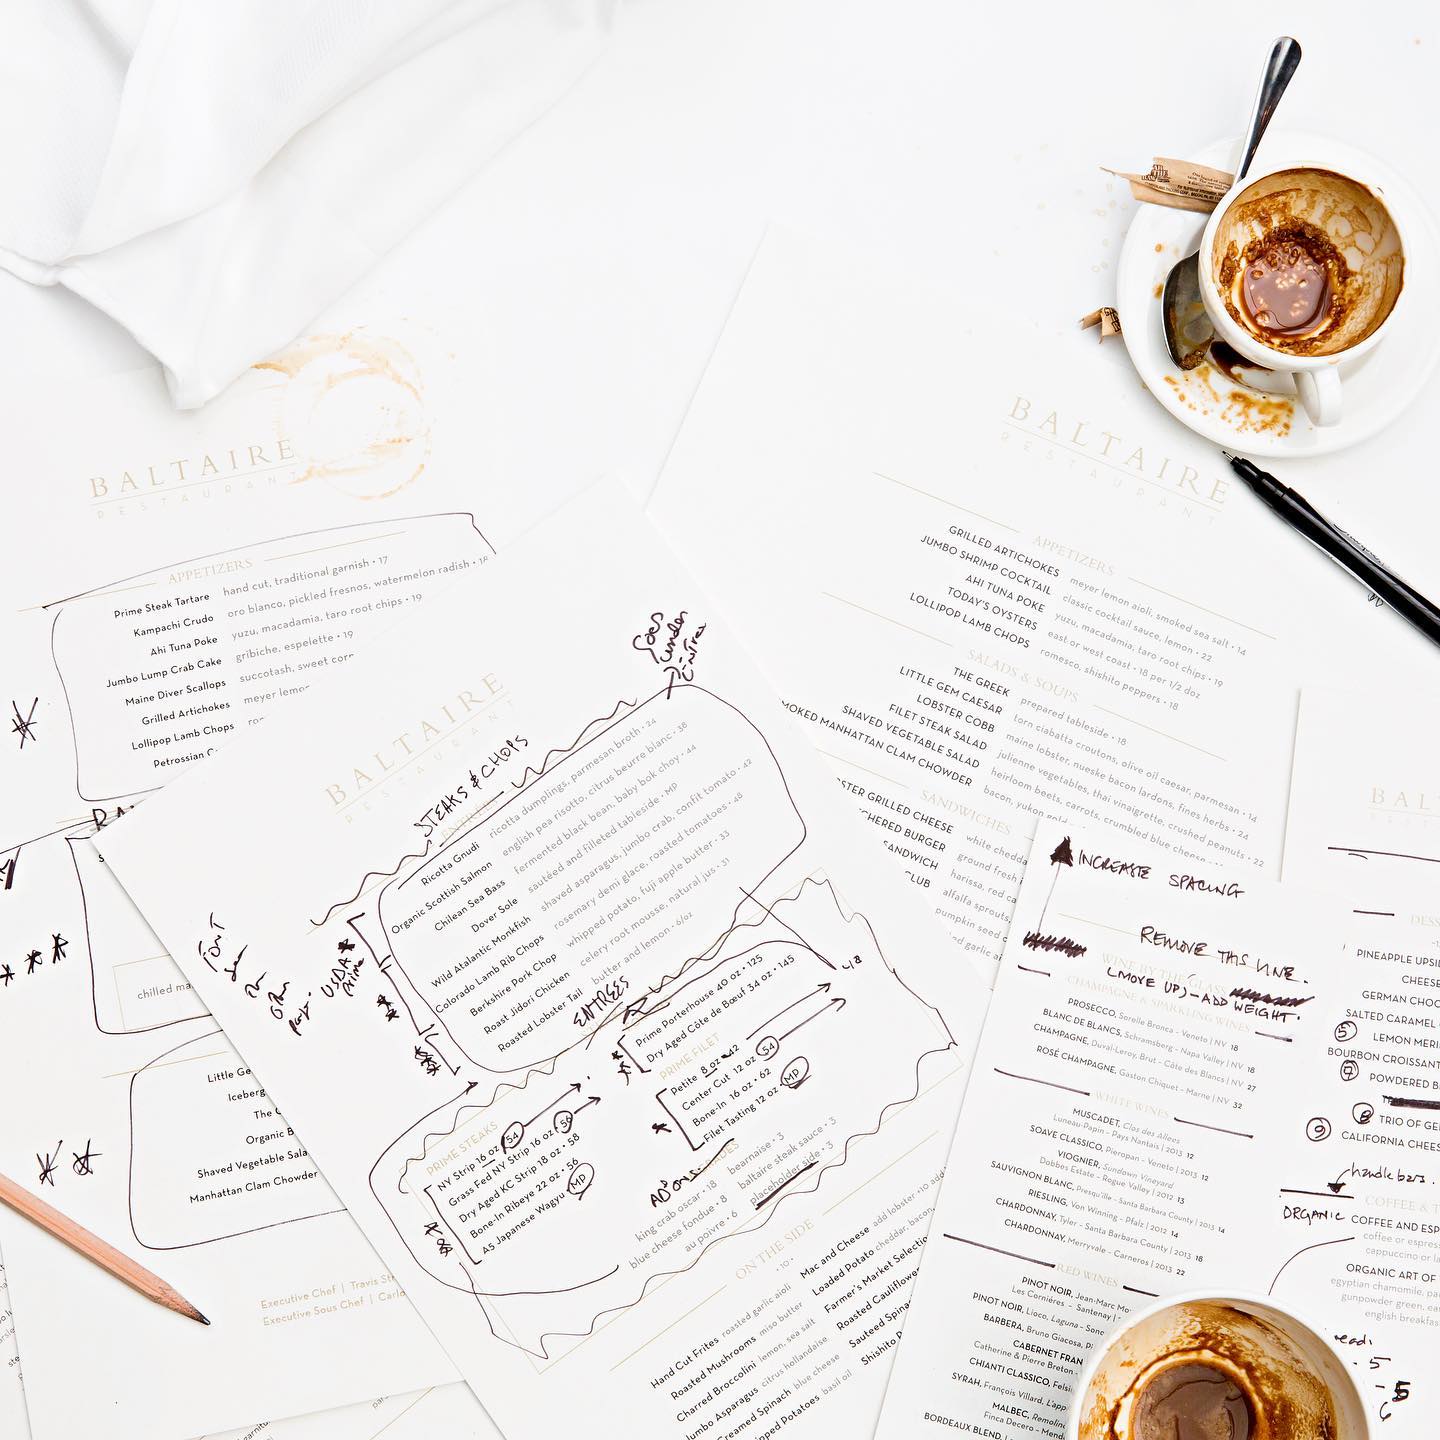 BALTAIRE
RESTAURANT
APPETIZERS
Prime Steak Tartare hand cut, traditional garnish • 17
Kampachi Crudo oro blanco, pickled fresnos, watermelon radish •
Ahi Tuna Poke yuzu, macadamia, taro root chips • 19
Jumbo Lump Crab Cake gribiche, espelette • 19
Maine Diver Scallops succotash, sweet corn
Grilled Artichokes meyer
Lollipop Lamb Chops
Petrossian
chilled
Little
Iceberg
The
Organic
Shaved Vegetable
Manhattan Clam Chowder
Executive Chef | Travis
Executive Sous Chef |
BALTAIRE
RESTAURANT
Goes
under
Entrees
STEAKS & CHOPS
Ricotta Gnudi ricotta dumplings, parmesan broth • 24
Organic Scottish Salmon english pea risotto, citrus beurre blanc • 38
Chilean Sea Bass fermented black bean, baby bok choy • 44
Dover Sole sautéed and filleted tableside • MP
Wild Atalantic Monkfish shaved asparagus, jumbo crab, confit tomato • 42
Colorado Lamb Rib Chops rosemary demi glace, roasted tomatoes • 48
Berkshire Pork Chop whipped potato, fuji apple butter • 33
Roast Jidori Chicken celery root mousse, natural jus • 31
Roasted Lobster Tail butter and lemon • 6/oz
FONT
USDA
Prime
ENTREES
PRIME STEAKS
NY Strip 16 oz 54
Grass Fed NY Strip 16 oz 56
Dry Aged KC Strip 18 oz • 58
Bone-In Ribeye 22 oz • 56
A5 Japanese Wagyu MP
Prime Porterhouse 40 oz • 125
Dry Aged Côte de Bœuf 34 oz • 145
PRIME FILET
Petite 8 oz 42
Center Cut 12 oz 54
Bone-In 16 oz • 62
Filet Tasting 12 oz • MP
ADD ONS
king crab oscar • 18 bearnaise • 3
blue cheese fondue • 8 baltaire steak sauce • 3
au poivre • 6 placeholder side • 3
ON THE SIDE
• 10 •
Hand Cut Frites roasted garlic aioli
Roasted Mushrooms miso butter
Charred Broccolini lemon, sea salt
Jumbo Asparagus citrus hollandaise
Creamed Spinach blue cheese
Whipped Potatoes basil oil
Mac and Cheese add lobster
Loaded Potato cheddar, bacon,
Farmer's Market Selection
Roasted Cauliflower
Sauteed Spinach
Shishito
BALTAIRE
RESTAURANT
APPETIZERS
GRILLED ARTICHOKES meyer lemon aioli, smoked sea salt • 14
JUMBO SHRIMP COCKTAIL classic cocktail sauce, lemon • 22
AHI TUNA POKE yuzu, macadamia, taro root chips • 19
TODAY'S OYSTERS east or west coast • 18 per 1/2 doz
LOLLIPOP LAMB CHOPS romesco, shishito peppers • 18
SALADS & SOUPS
THE GREEK prepared tableside • 18
LITTLE GEM CAESAR torn ciabatta croutons, olive oil caesar, parmesan • 14
LOBSTER COBB maine lobster, nueske bacon lardons, fines herbs • 24
FILET STEAK SALAD julienne vegetables, thai vinaigrette, crushed peanuts • 22
SHAVED VEGETABLE SALAD heirloom beets, carrots, crumbled blue cheese
SMOKED MANHATTAN CLAM CHOWDER bacon, yukon gold
SANDWICHES
GRILLED CHEESE white cheddar
BURGER ground fresh
SANDWICH harissa, red
CLUB alfalfa sprouts,
pumpkin seed
garlic
INCREASE SPACING
REMOVE THIS LINE.
(MOVE UP) – ADD WEIGHT.
WINE BY THE GLASS
CHAMPAGNE & SPARKLING WINES
PROSECCO, Sorelle Bronca – Veneto | NV 18
BLANC DE BLANCS, Schramsberg – Napa Valley | NV 18
CHAMPAGNE, Duval-Leroy, Brut – Côte des Blancs | NV 27
ROSÉ CHAMPAGNE, Gaston Chiquet – Marne | NV 32
WHITE WINES
MUSCADET, Clos des Allees
Luneau-Papin – Pays Nantais | 2013 12
SOAVE CLASSICO, Pieropan – Veneto | 2013 12
VIOGNIER, Sundown Vineyard
Dobbes Estate – Rogue Valley | 2012 13
SAUVIGNON BLANC, Presqu'ille – Santa Barbara County | 2013 14
RIESLING, Von Winning – Pfalz | 2012 14
CHARDONNAY, Tyler – Santa Barbara County | 2013 18
CHARDONNAY, Merryvale – Carneros | 2013 22
RED WINES
PINOT NOIR, Jean-Marc
Les Cornières – Santenay |
PINOT NOIR, Lioco, Laguna –
BARBERA, Bruno Giacosa,
CABERNET FRANC
Catherine & Pierre Breton –
CHIANTI CLASSICO,
SYRAH, François Villard,
MALBEC,
Finca Decero –
BORDEAUX BLEND,
PINEAPPLE
GERMAN
SALTED CARAMEL
5 LEMON
BOURBON CROISSANT
7 POWDERED
8 TRIO OF
9 CALIFORNIA
handle bars.
ORGANIC
COFFEE &
COFFEE AND
coffee or
cappuccino or
ORGANIC ART OF
egyptian chamomile,
gunpowder green,
english breakfast